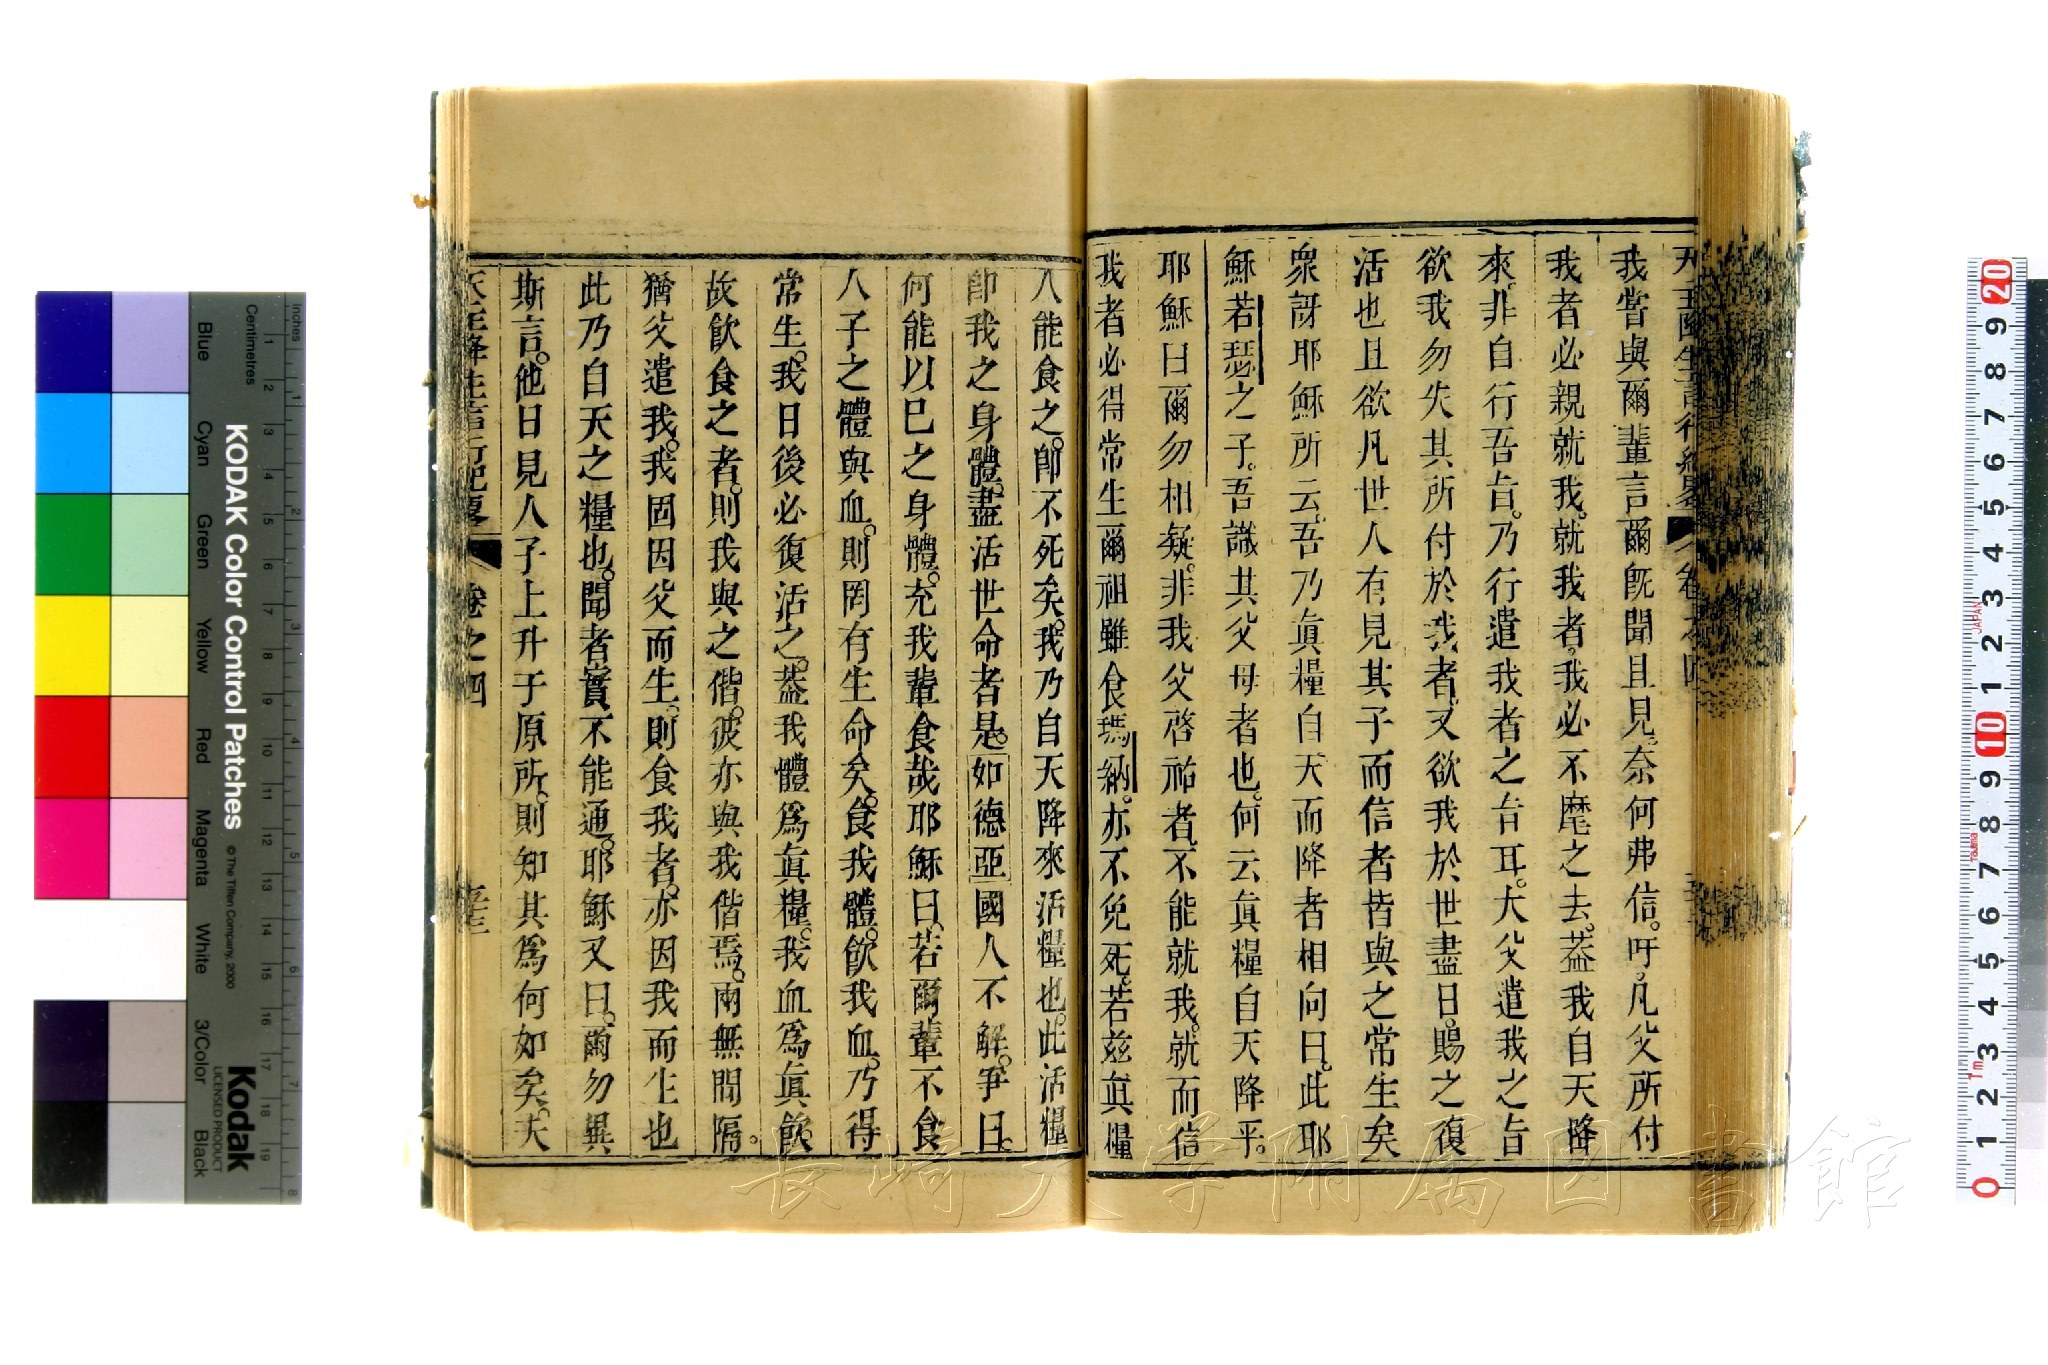 我嘗與爾輩言爾既聞且見奈何弗信。吁。凡父所付
我者必親就我。就我者。我必不麾之去。蓋我自天降
來。非自行吾旨。乃行遣我者之旨耳。夫父遣我之旨
欲我勿失其所付於我者。又欲我於世盡日。賜之復
活也且欲凡世人有見其子而信者皆與之常生矣
衆訝耶穌所云。吾乃眞糧自天而降者相向曰。此耶
穌若瑟之子。吾識其父母者也。何云眞糧自天降乎。
耶穌曰爾勿相疑。非我父啓祐者。不能就我。就而信
我者必得常生爾祖雖食瑪納。亦不免死。若茲眞糧
人能食之。卽不死矣。我乃自天降來活糧也。此活糧
卽我之身體。盡活世命者是。如德亞國人不解。爭曰。
何能以己之身體。充我輩食哉耶穌曰。若爾輩不食
人子之體與血。則罔有生命矣。食我體。飮我血。乃得
常生。我日後必復活之。蓋我體爲眞糧。我血爲眞飮。
故飮食之者。則我與之偕。彼亦與我偕焉。兩無間隔。
猶父遣我。我固因父而生。則食我者。亦因我而生也
此乃自天之糧也。聞者實不能通。耶穌又曰。爾勿異
斯言。他日見人子上升于原所。則知其爲何如矣。夫
天主降生言行紀畧 卷之四
長崎大学附属図書館
KODAK Color Control Patches
© The Tiffen Company, 2000
Kodak
LICENSED PRODUCT
inches
Centimetres
Blue
Cyan
Green
Yellow
Red
Magenta
White
3/Color
Black